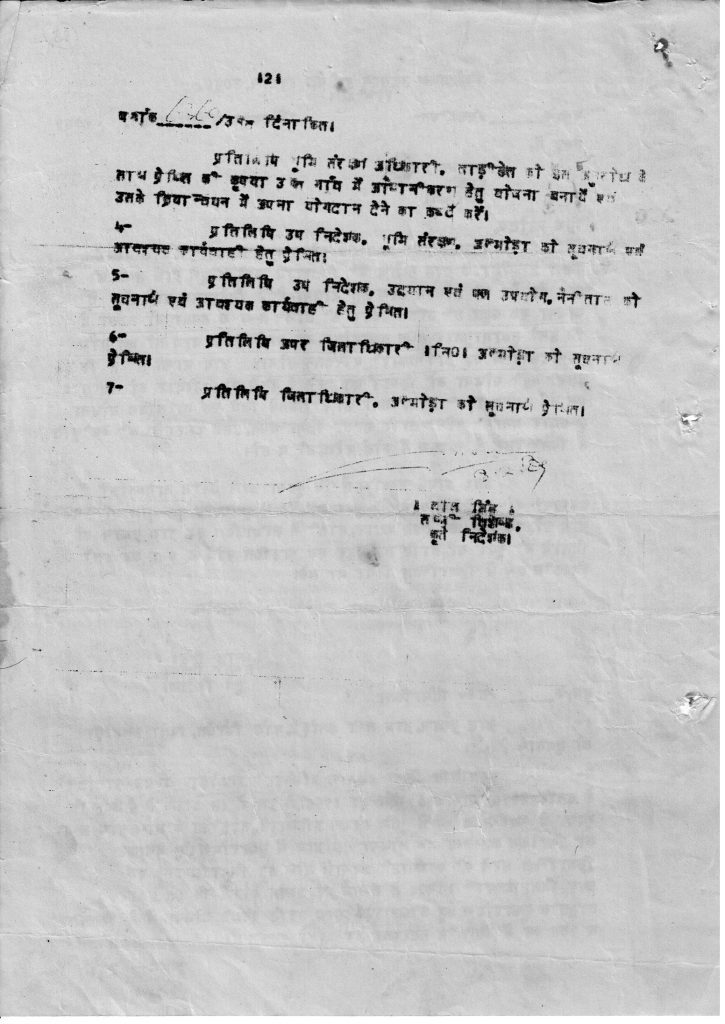 ।2।
पत्रांक /उक्त दिनांकित।
प्रतिलिपि भूमि संरक्षण अधिकारी, ताड़ीखेत को इस अनुरोध के
साथ प्रेषित की कृपया उक्त गांव में उद्यानीकरण हेतु योजना बनायें एवं
उसके क्रियान्वयन में अपना योगदान देने का कष्ट करें।
4- प्रतिलिपि उप निदेशक, भूमि संरक्षण, अल्मोड़ा को सूचनार्थ एवं
आवश्यक कार्यवाही हेतु प्रेषित।
5- प्रतिलिपि उप निदेशक, उद्यान एवं फल उपयोग, नैनीताल को
सूचनार्थ एवं आवश्यक कार्यवाही हेतु प्रेषित।
6- प्रतिलिपि अपर जिलाधिकारी ।नि०। अल्मोड़ा को सूचनार्थ
प्रेषित।
7- प्रतिलिपि जिलाधिकारी, अल्मोड़ा को सूचनार्थ प्रेषित।
सिंह
कृते निदेशक।